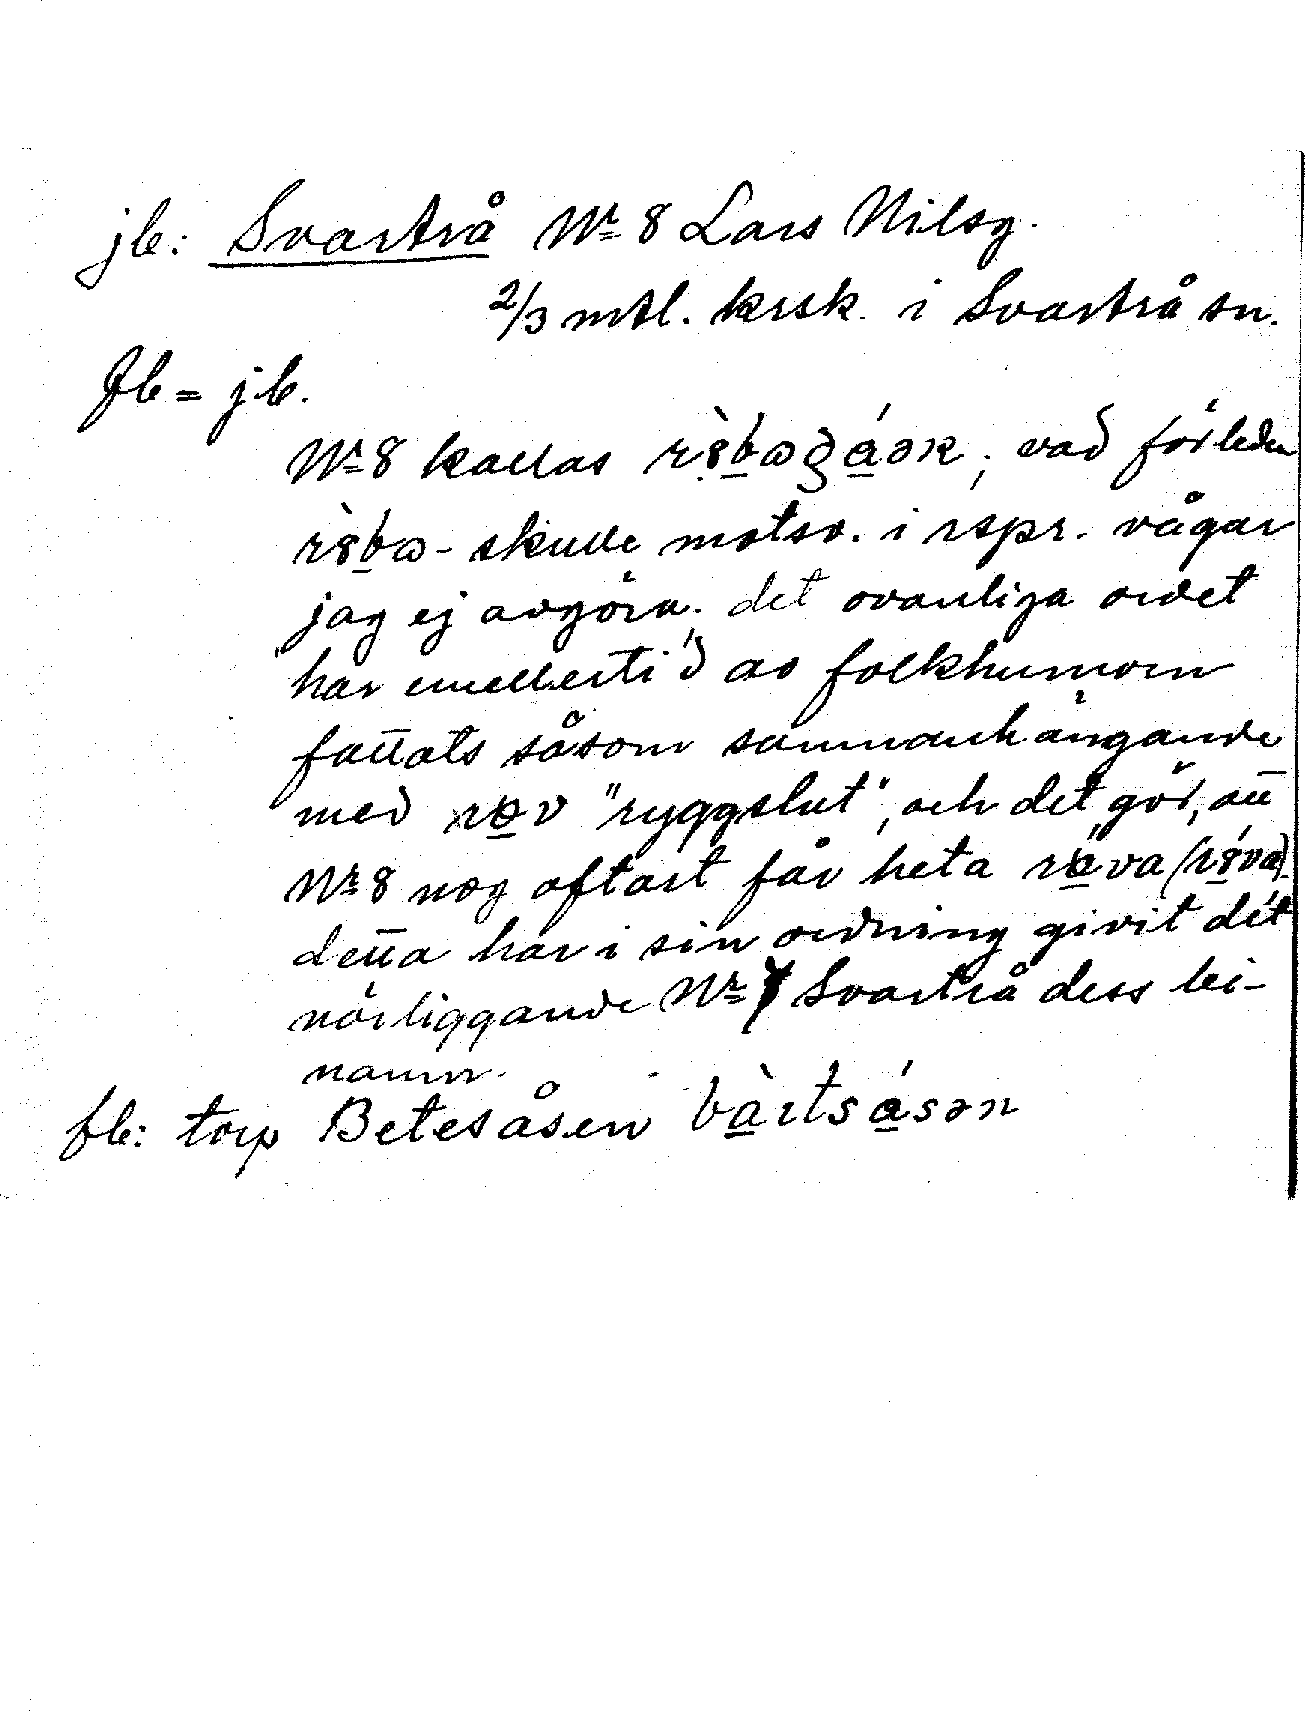 jb: Svartrå Nr 8 Lars Nilsg.
2/3 mtl. krsk. i Svartrå sn.
fb = jb.
Nr 8 kallas; vad förleden
skulle motsv. i rspr. vågar
jag ej avgöra; det ovanliga ordet
har emellertid av folkhumorn
fattats såsom sammanhängande
med "ryggslut", och det gör, att
Nr 8 nog oftast får heta
detta har i sin ordning givit det
närliggande Nr Svartrå dess bi-
namn.
fb: torp Betesåsen bàrtsásən